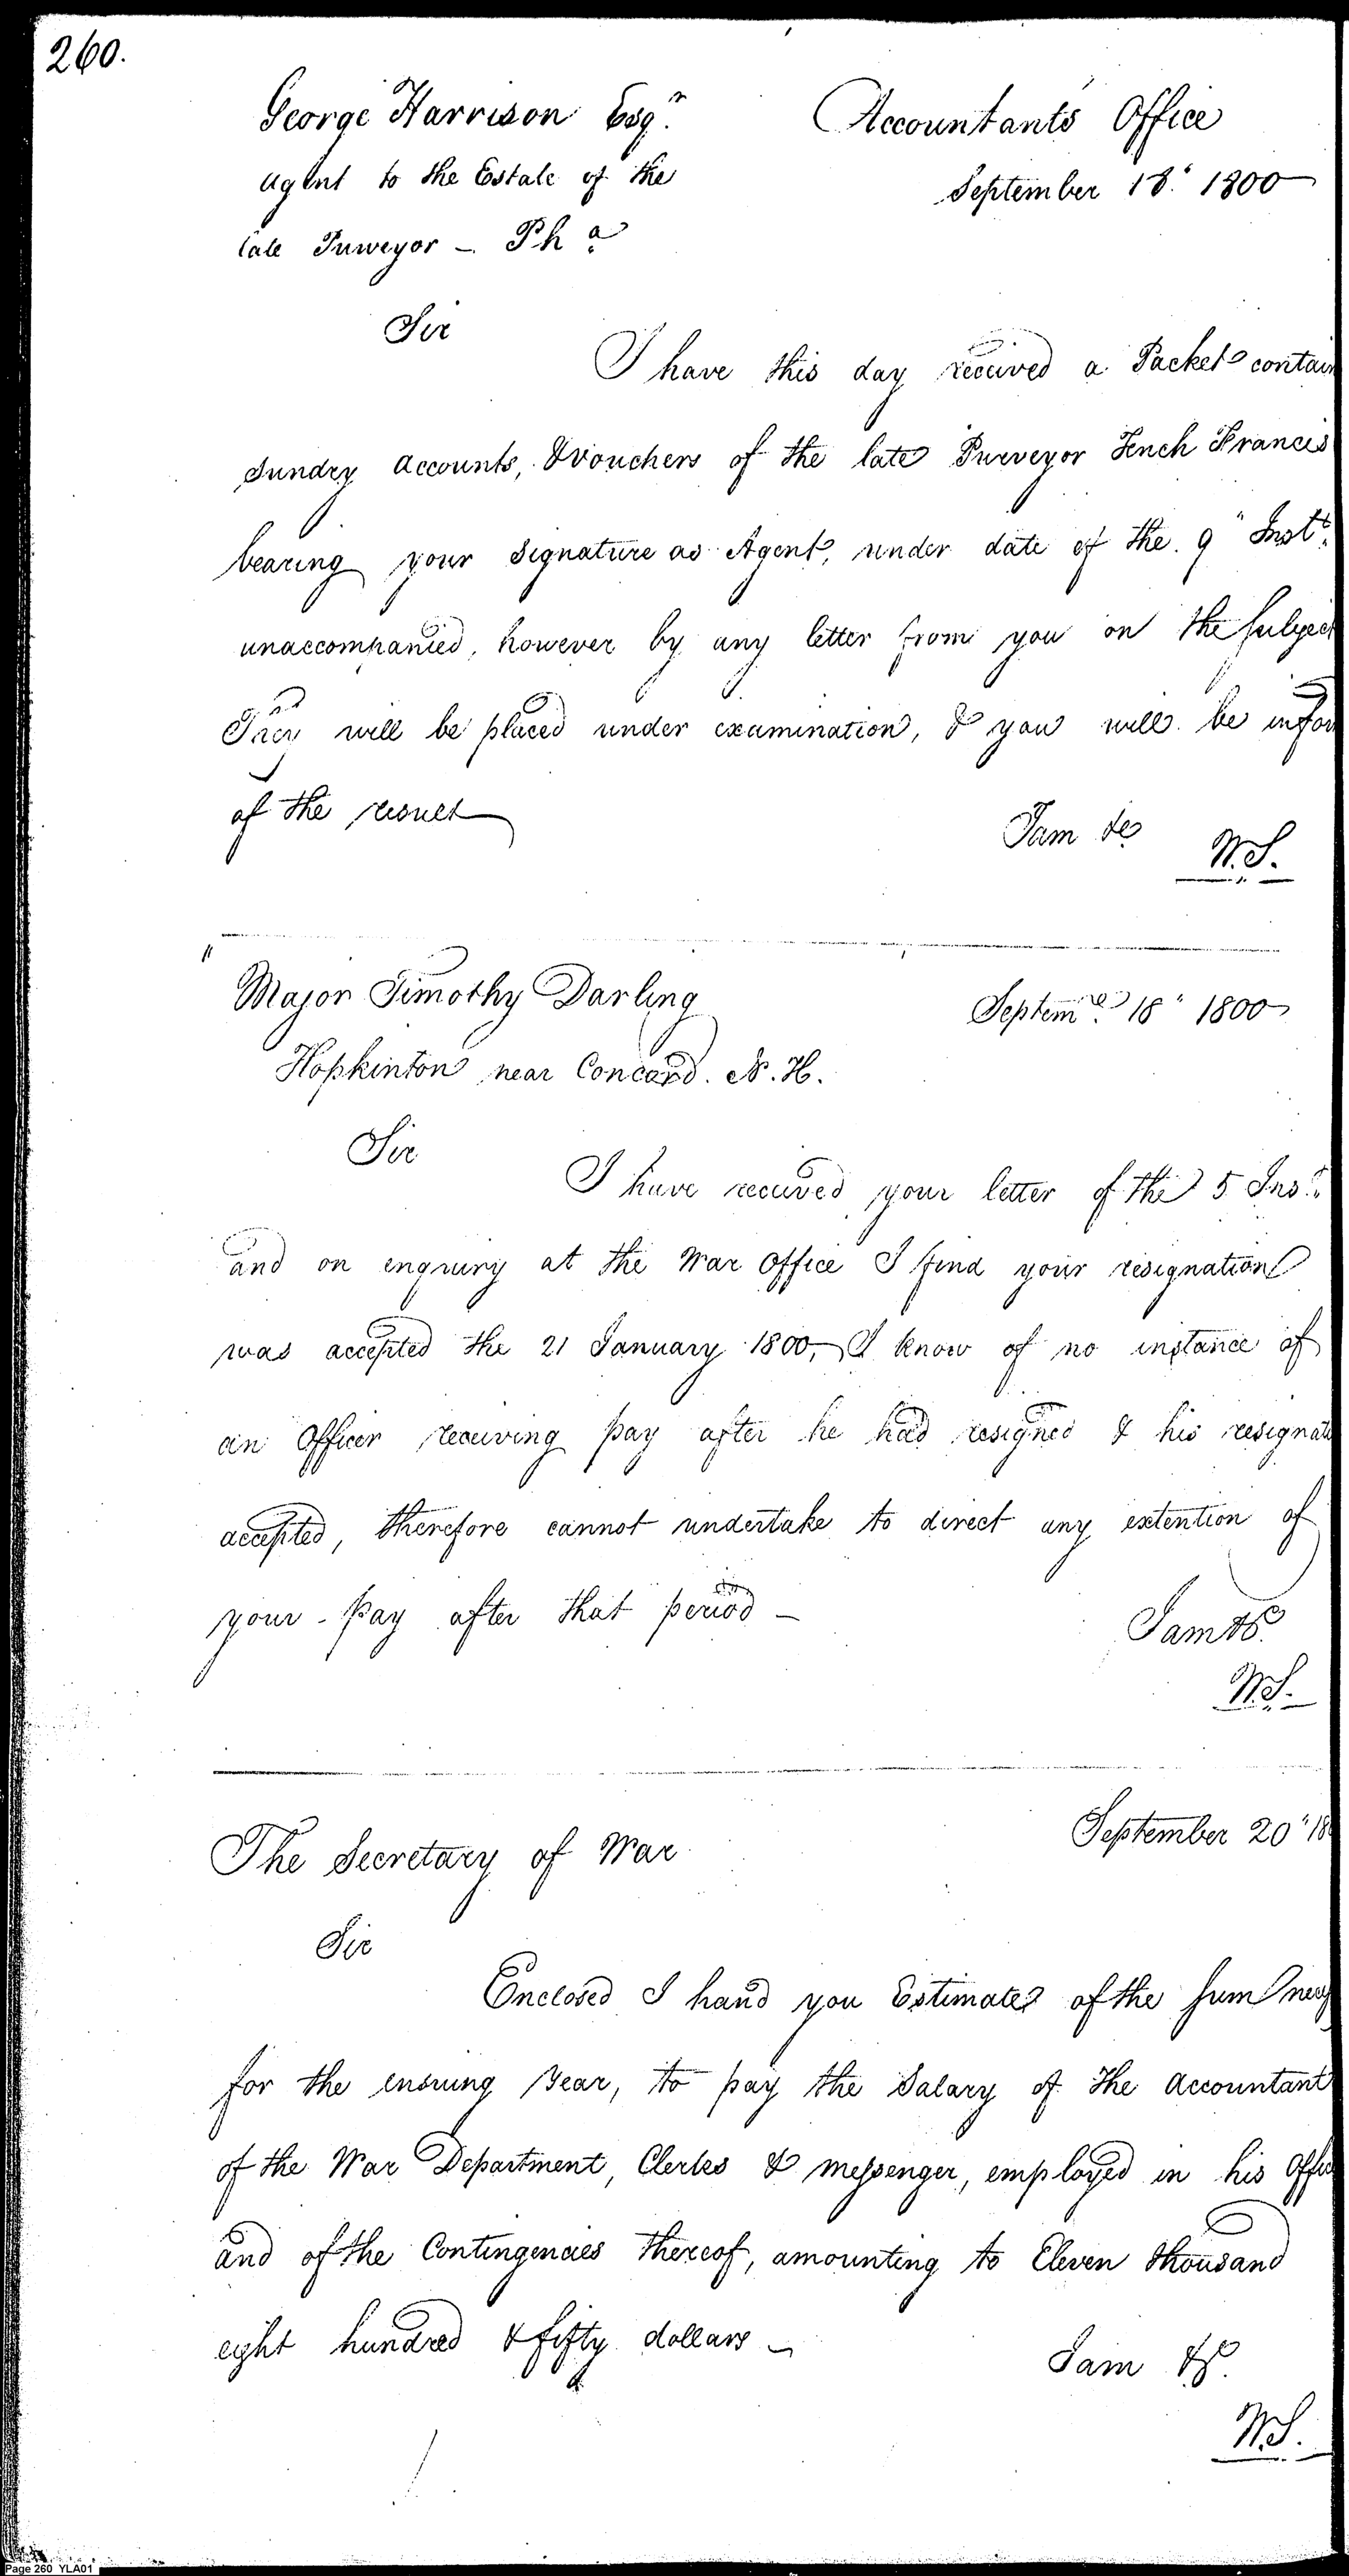 260.
George Harrison Esqr.
Agent to the Estate of the
late Purveyor - Pha
Accountants Office
September 18" 1800
Sir
I have this day received a Packet contain
sundry accounts, & vouchers of the late Purveyor Tench Francis
bearing your signature as Agent, under date of the 9" Instt.
unaccompanied, however by any letter from you on the subject
They will be placed under examination, & you will be infor
of the result
I am &c
W.S.
Major Timothy Darling
Septemre. 18" 1800
Hopkinton near Concord. N. H.
Sir
I have received your letter of the 5 Inst.
and on enquiry at the War Office I find your resignation
was accepted the 21 January 1800, I know of no instance of
an Officer receiving pay after he had resigned & his resignat
accepted, therefore cannot undertake to direct any extention of
your - pay after that period -
I am &c.
W.S.
The Secretary of War
September 20" 18
Sir
Enclosed I hand you Estimate of the sum necy
for the ensuing year, to pay the Salary of the Accountant
of the War Department, Clerks & messenger, employed in his Offic
and of the Contingencies thereof, amounting to Eleven thousand
eight hundred & fifty dollars -
I am &c.
W.S.
Page 260 YLA01